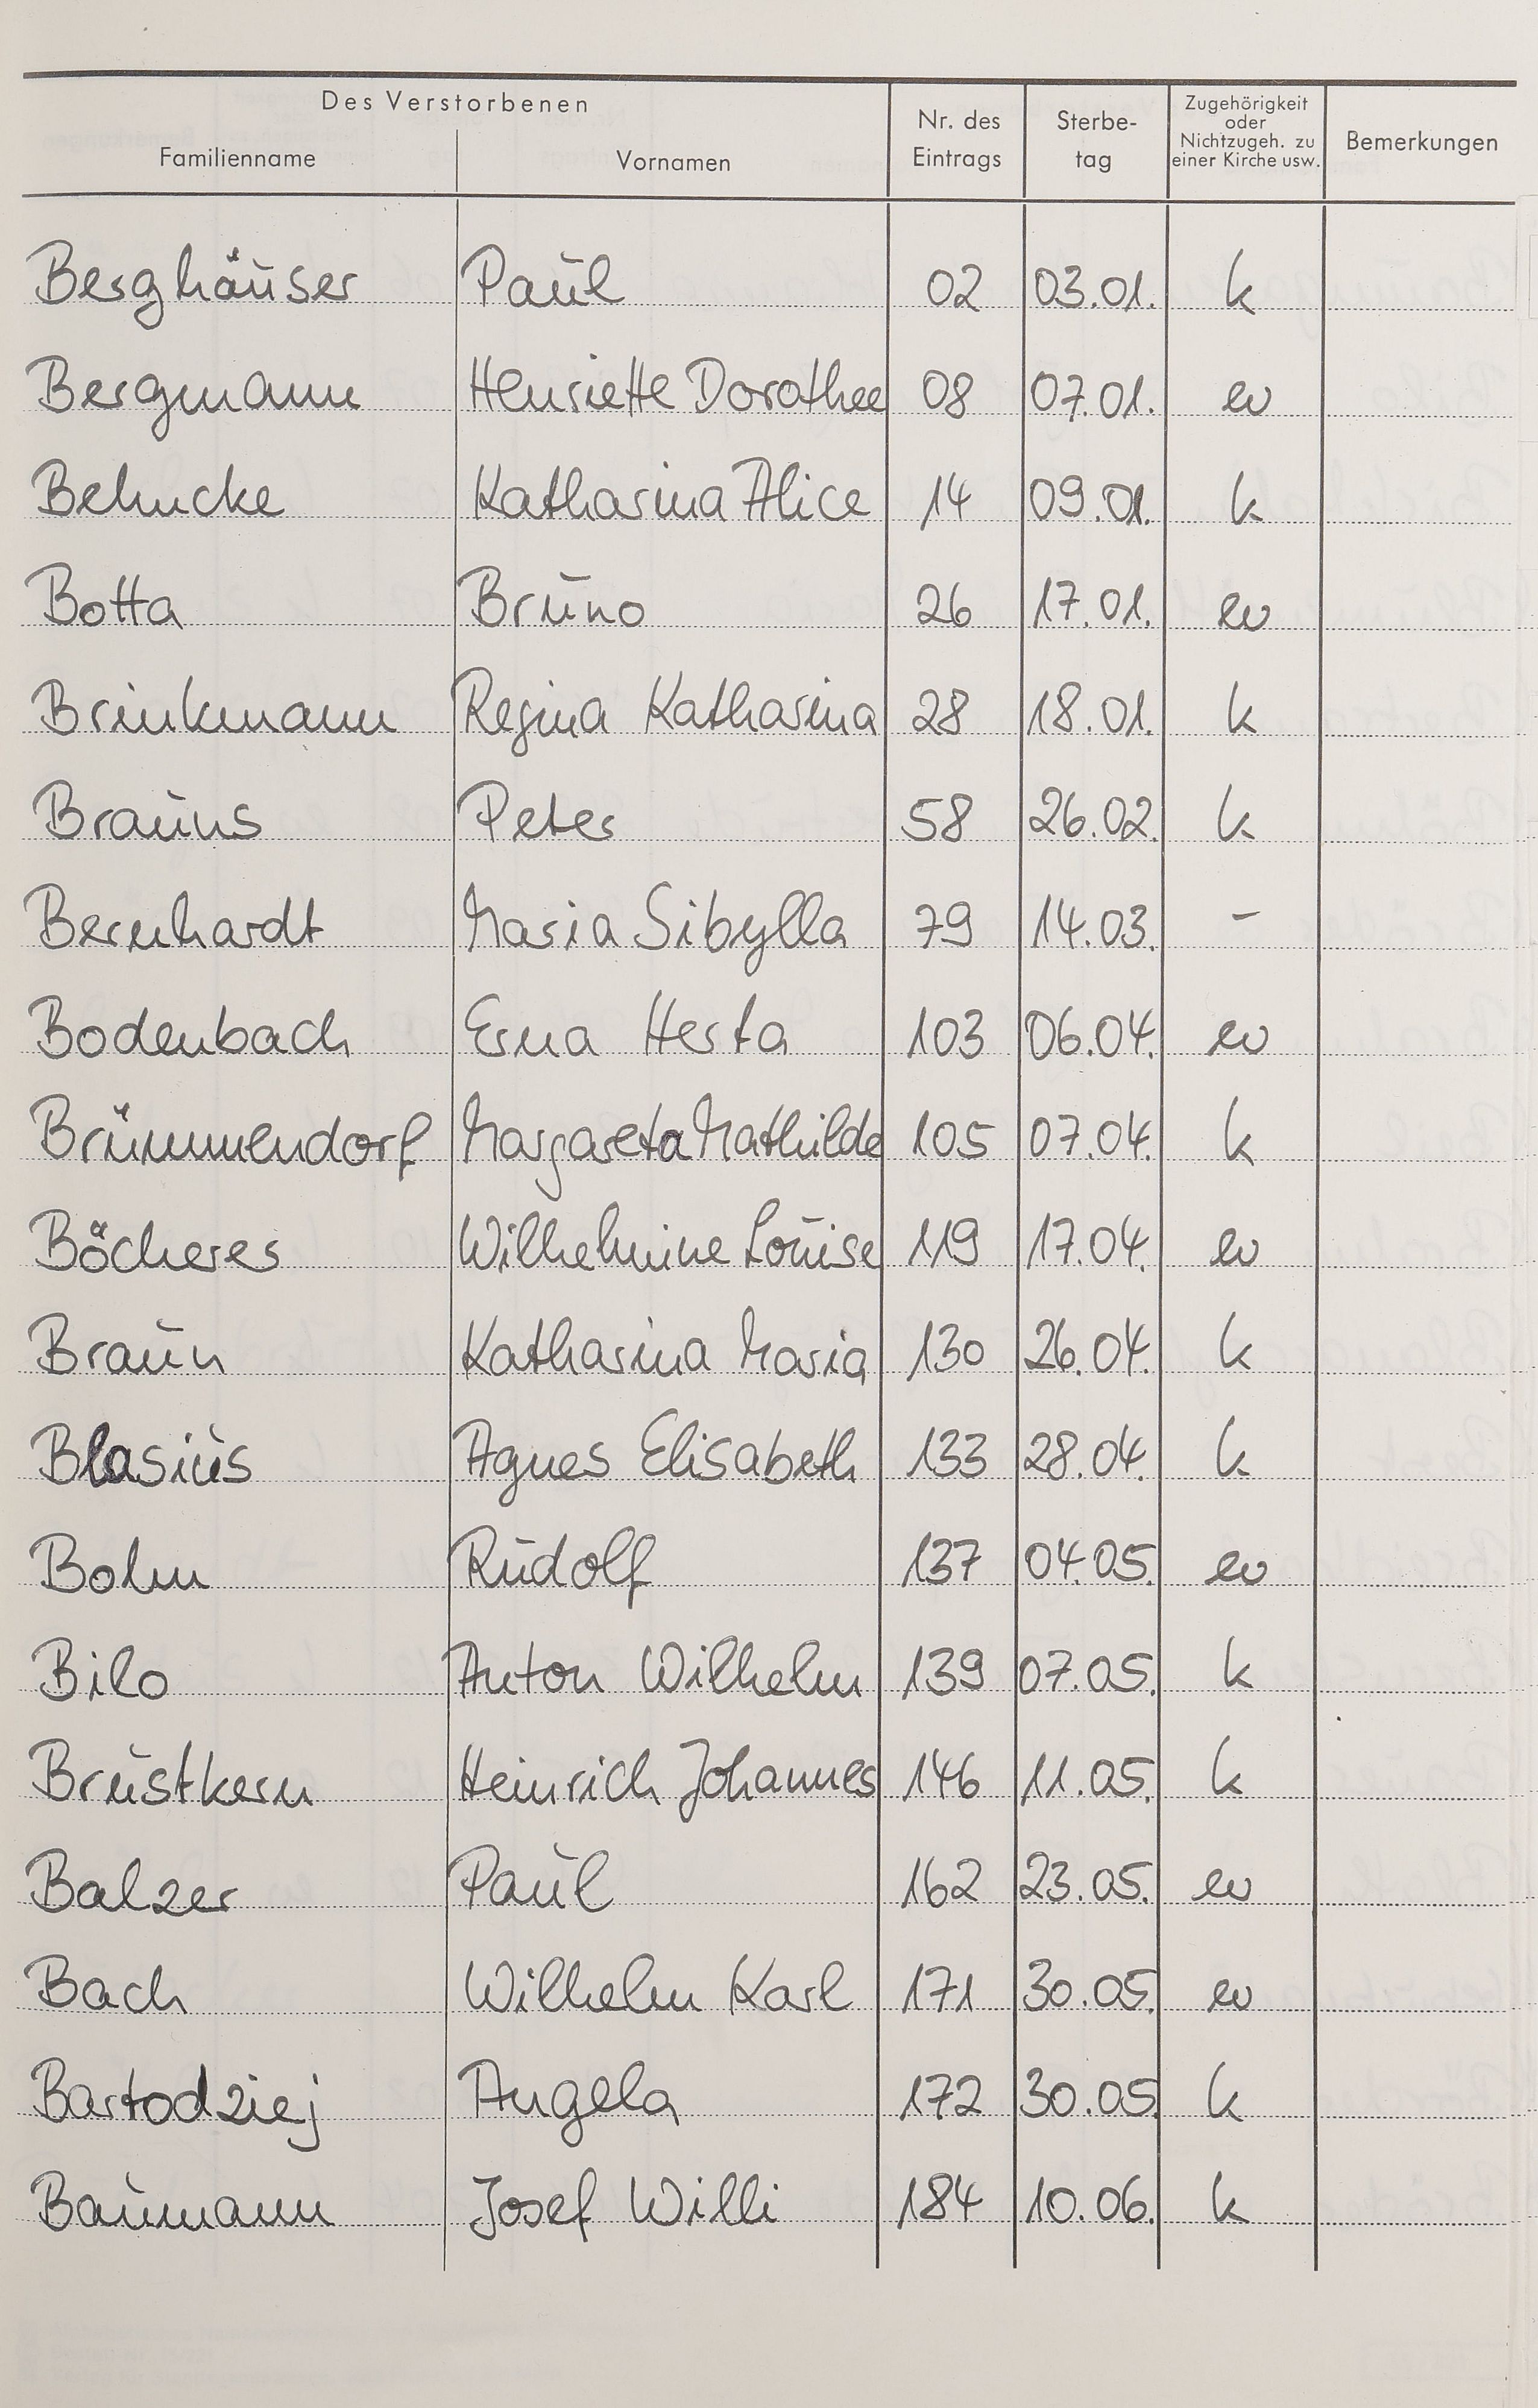 Des Verstorbenen
Familienname Vornamen Nr. des Eintrags Sterbe-tag Zugehörigkeit oder Nichtzugeh. zu einer Kirche usw. Bemerkungen
Berghäuser Paul 02 03.01. k
Bergmann Henriette Dorothee 08 07.01. ev
Behncke Katharina Alice 14 09.01. k
Botta Bruno 26 17.01. ev
Brinkmann Regina Katharina 28 18.01. k
Brauns Peter 58 26.02. k
Bernhardt Maria Sibylla 79 14.03. -
Bodenbach Erna Herta 103 06.04. ev
Brümmendorf Margareta Mathilde 105 07.04. k
Böcheres Wilhelmine Louise 119 17.04. ev
Braun Katharina Maria 130 26.04. k
Blasius Agnes Elisabeth 133 28.04. k
Bohn Rudolf 137 04.05. ev
Bilo Anton Wilhelm 139 07.05. k
Brustkern Heinrich Johannes 146 11.05. k
Balzer Paul 162 23.05. ev
Bach Wilhelm Karl 171 30.05. ev
Bartodziej Angela 172 30.05. k
Baumann Josef Willi 184 10.06. k